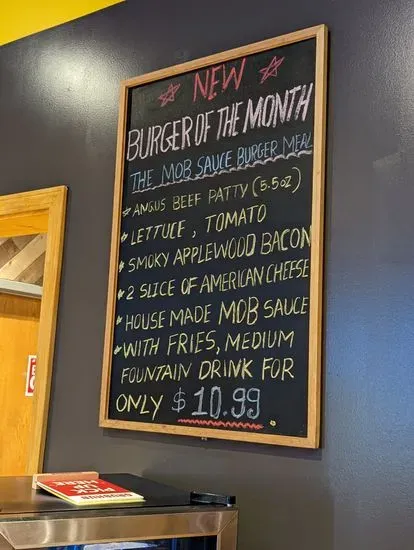 ☆ NEW ☆
BURGER OF THE MONTH
THE MOB SAUCE BURGER MEAL
* ANGUS BEEF PATTY (5.5oz)
* LETTUCE, TOMATO
* SMOKY APPLEWOOD BACON
* 2 SLICE OF AMERICAN CHEESE
* HOUSE MADE MOB SAUCE
* WITH FRIES, MEDIUM
FOUNTAIN DRINK FOR
ONLY $10.99
PICK UP
HERE